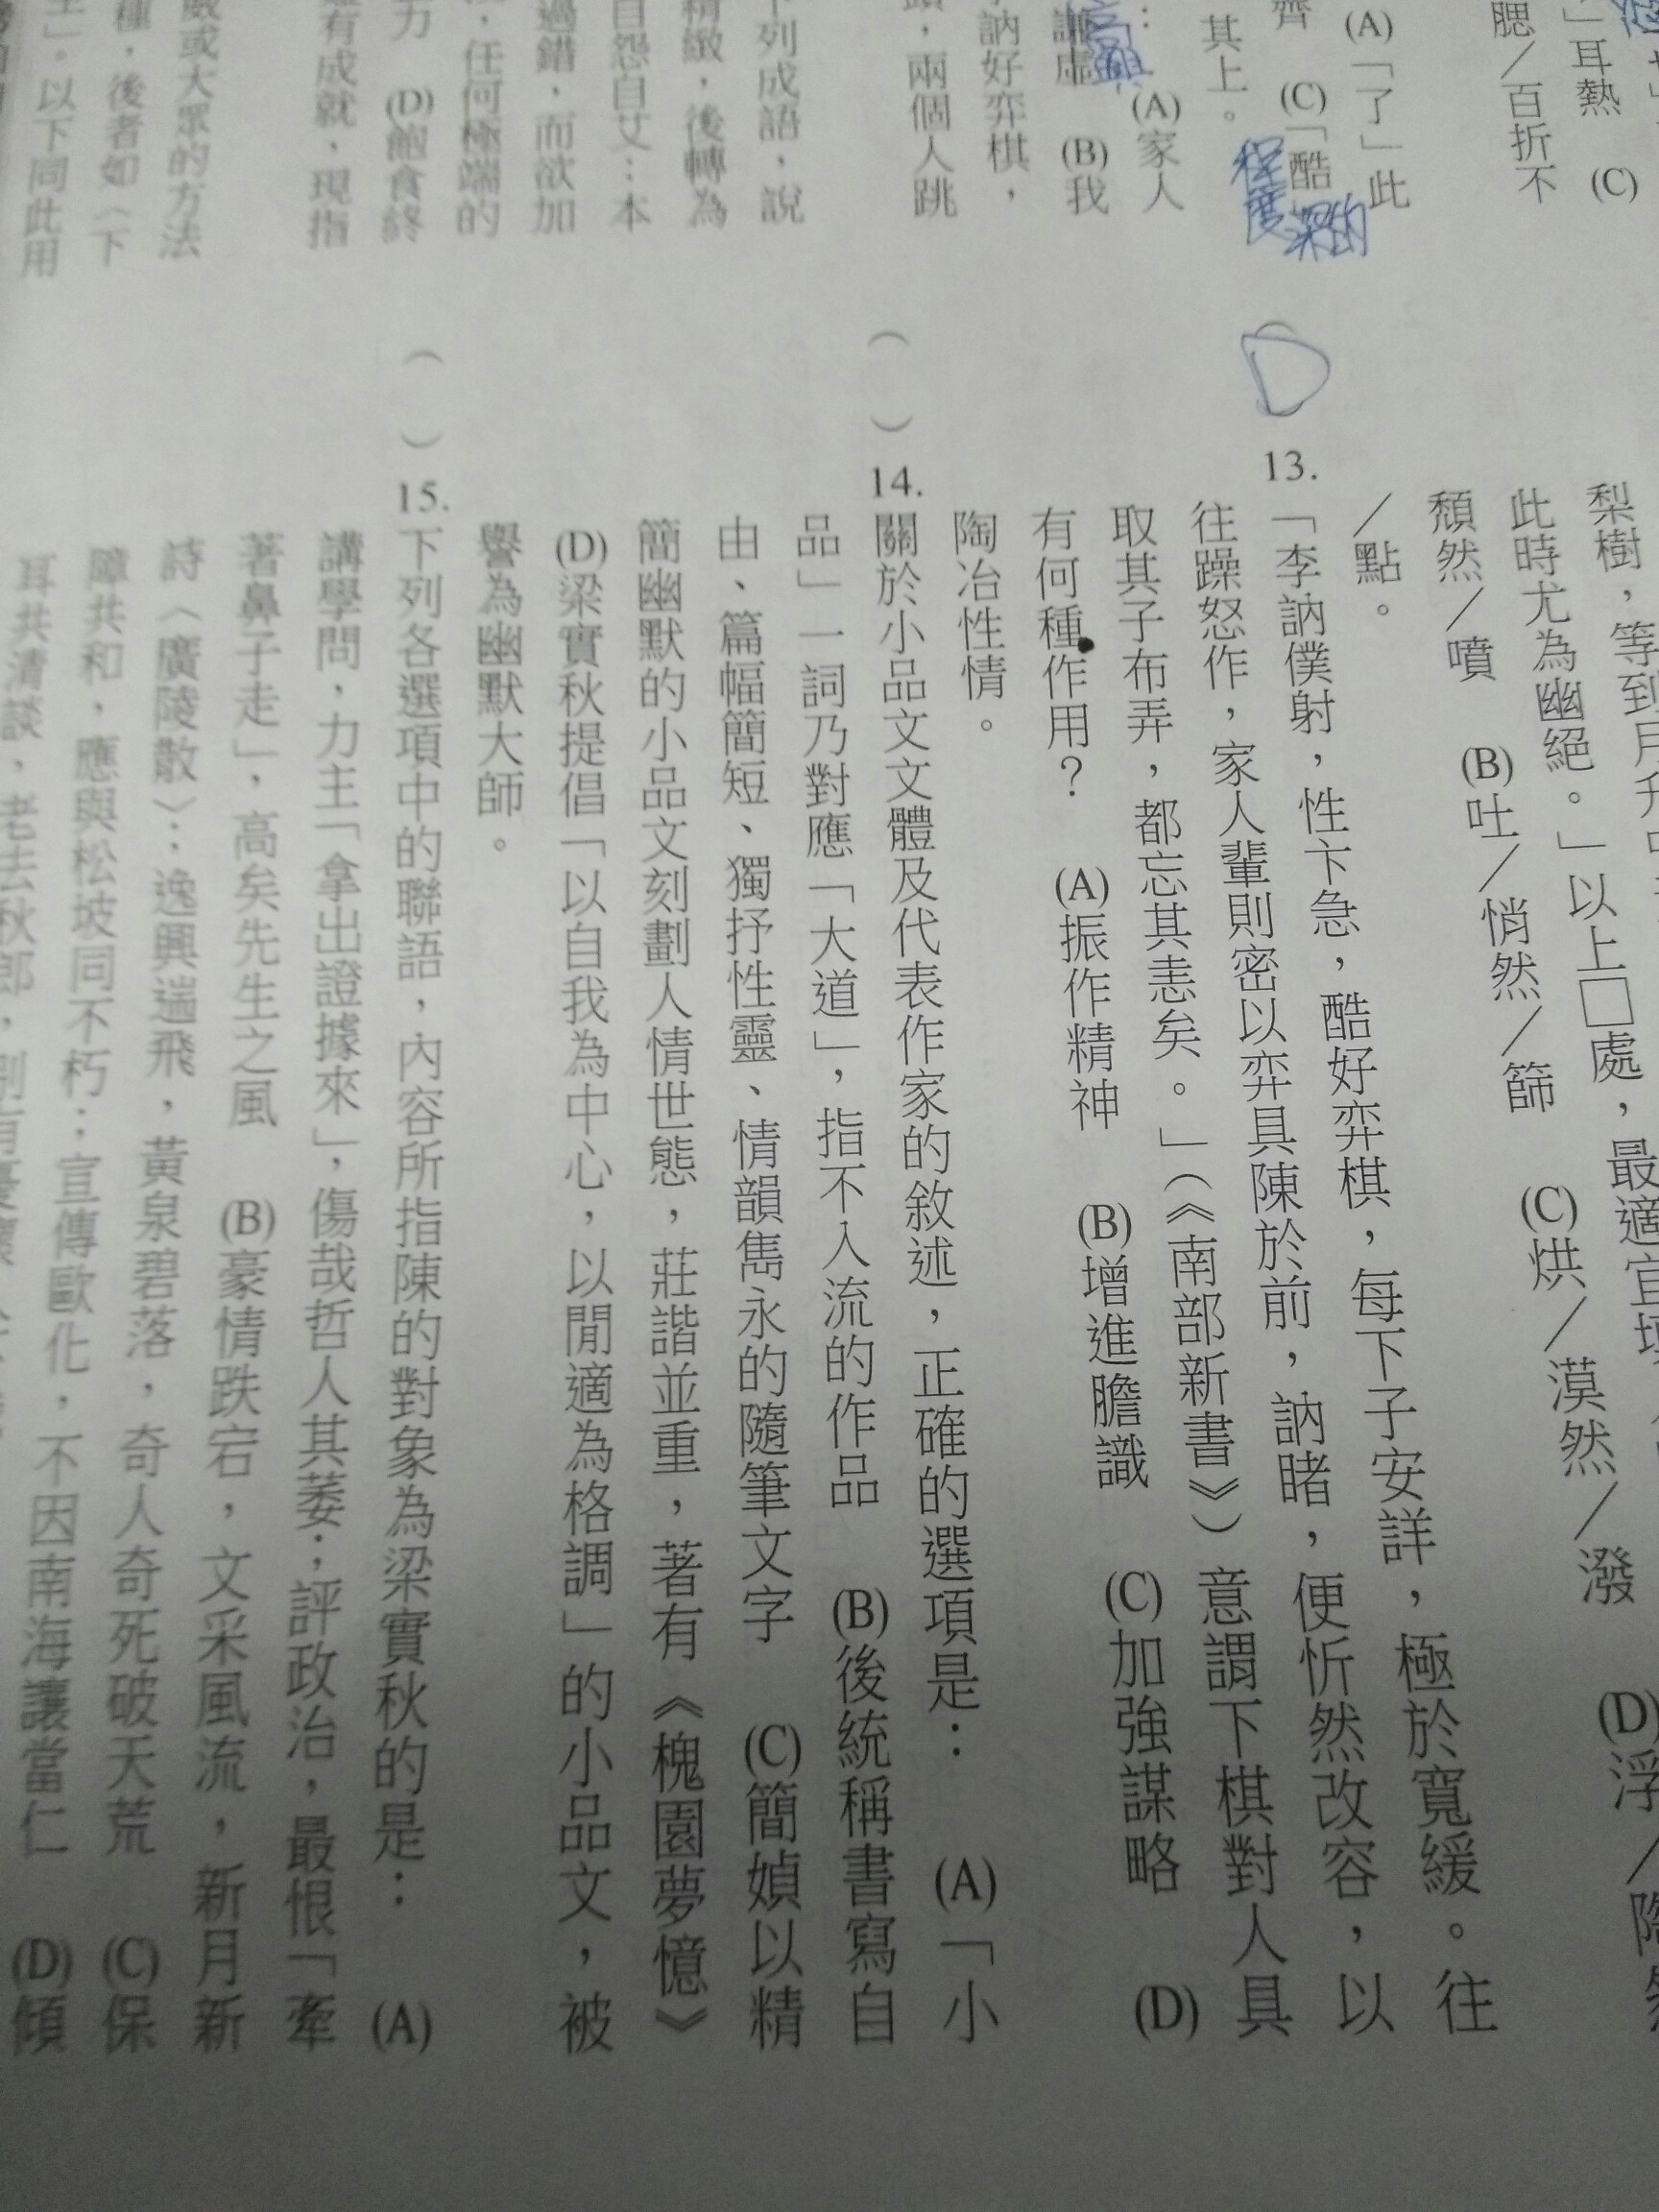 」耳熱 (C)
腮／百折不
(A)「了」此
齊 (C)「酷
其上。
程度深的
(A)家人
謙虛 (B)我
訥好弈棋，
，兩個人跳
下列成語，說
精緻，後轉為
自怨自艾：本
過錯，而欲加
，任何極端的
力 (D)飽食終
有成就，現指
威或大眾的方法
種，後者如〈下
」。以下同此用
梨樹，等到月升
此時尤為幽絕。」以上□處，最適宜填
頹然／噴 (B)吐／悄然／篩 (C)烘／漠然／潑 (D)浮／陶然
／點。
D
13.「李訥僕射，性卞急，酷好弈棋，每下子安詳，極於寬緩。往
往躁怒作，家人輩則密以弈具陳於前，訥睹，便忻然改容，以
取其子布弄，都忘其恚矣。」（《南部新書》）意謂下棋對人具
有何種作用？ (A)振作精神 (B)增進膽識 (C)加強謀略 (D)
陶冶性情。
( ) 14.關於小品文文體及代表作家的敘述，正確的選項是： (A)「小
品」一詞乃對應「大道」，指不入流的作品 (B)後統稱書寫自
由、篇幅簡短、獨抒性靈、情韻雋永的隨筆文字 (C)簡媜以精
簡幽默的小品文刻劃人情世態，莊諧並重，著有《槐園夢憶》
(D)梁實秋提倡「以自我為中心，以閒適為格調」的小品文，被
譽為幽默大師。
( ) 15.下列各選項中的聯語，內容所指陳的對象為梁實秋的是： (A)
講學問，力主「拿出證據來」，傷哉哲人其萎；評政治，最恨「牽
著鼻子走」，高矣先生之風 (B)豪情跌宕，文采風流，新月新
詩〈廣陵散〉；逸興遄飛，黃泉碧落，奇人奇死破天荒 (C)保
障共和，應與松坡同不朽；宣傳歐化，不因南海讓當仁 (D)傾
耳共清談，老去秋郎，別有憂懷